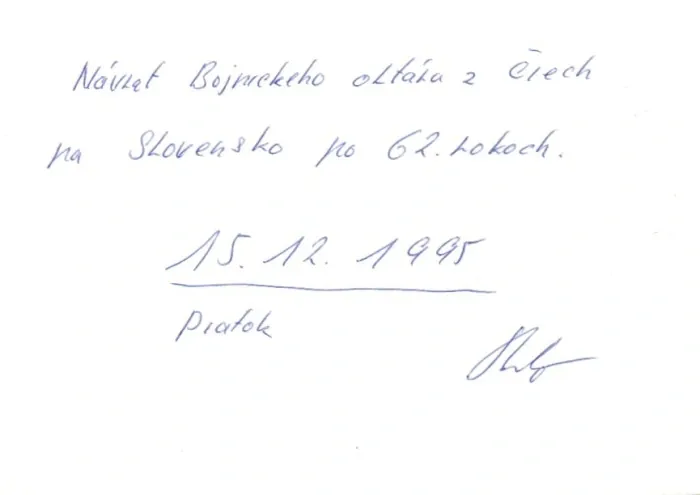 Návrat Bojnického oltára z Čiech
na Slovensko po 62. rokoch.
15.12.1995
Piatok